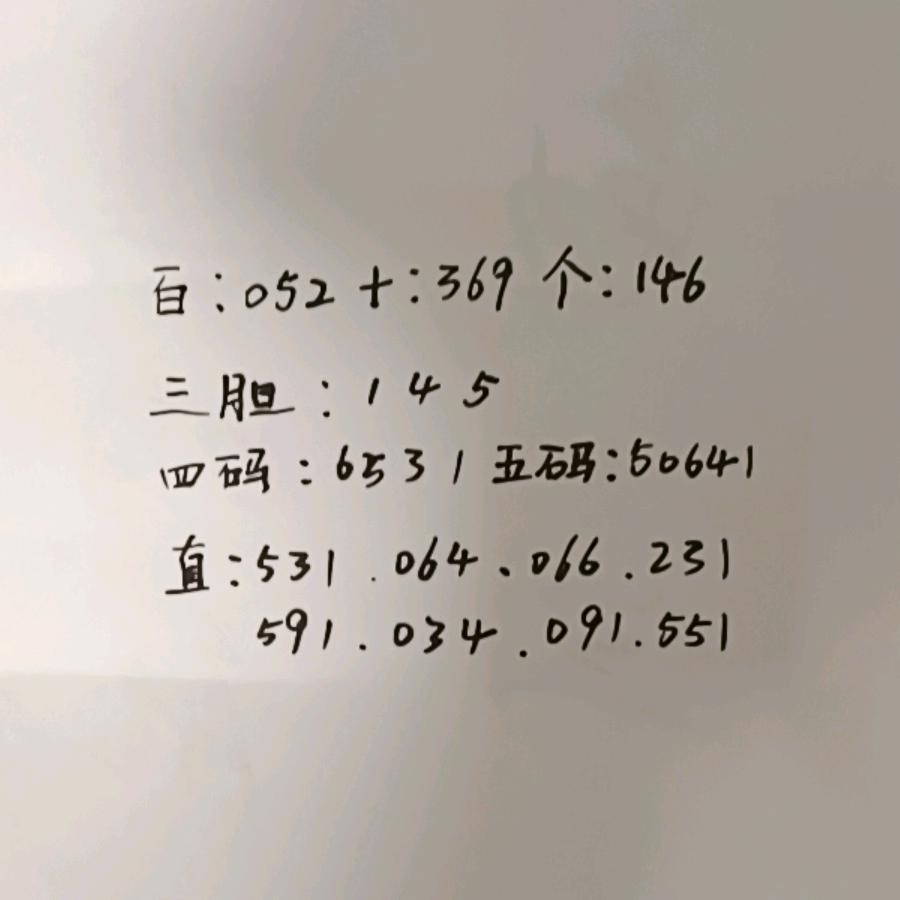 百:052 十:369 个:146
三胆:1 4 5
四码:6531 五码:50641
直:531.064、066.231
591.034.091.551